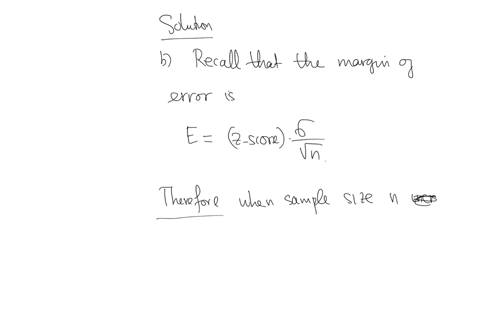 Solution
b) Recall that the margin of
error is
E = (z-score) · σ/√n
Therefore when sample size n